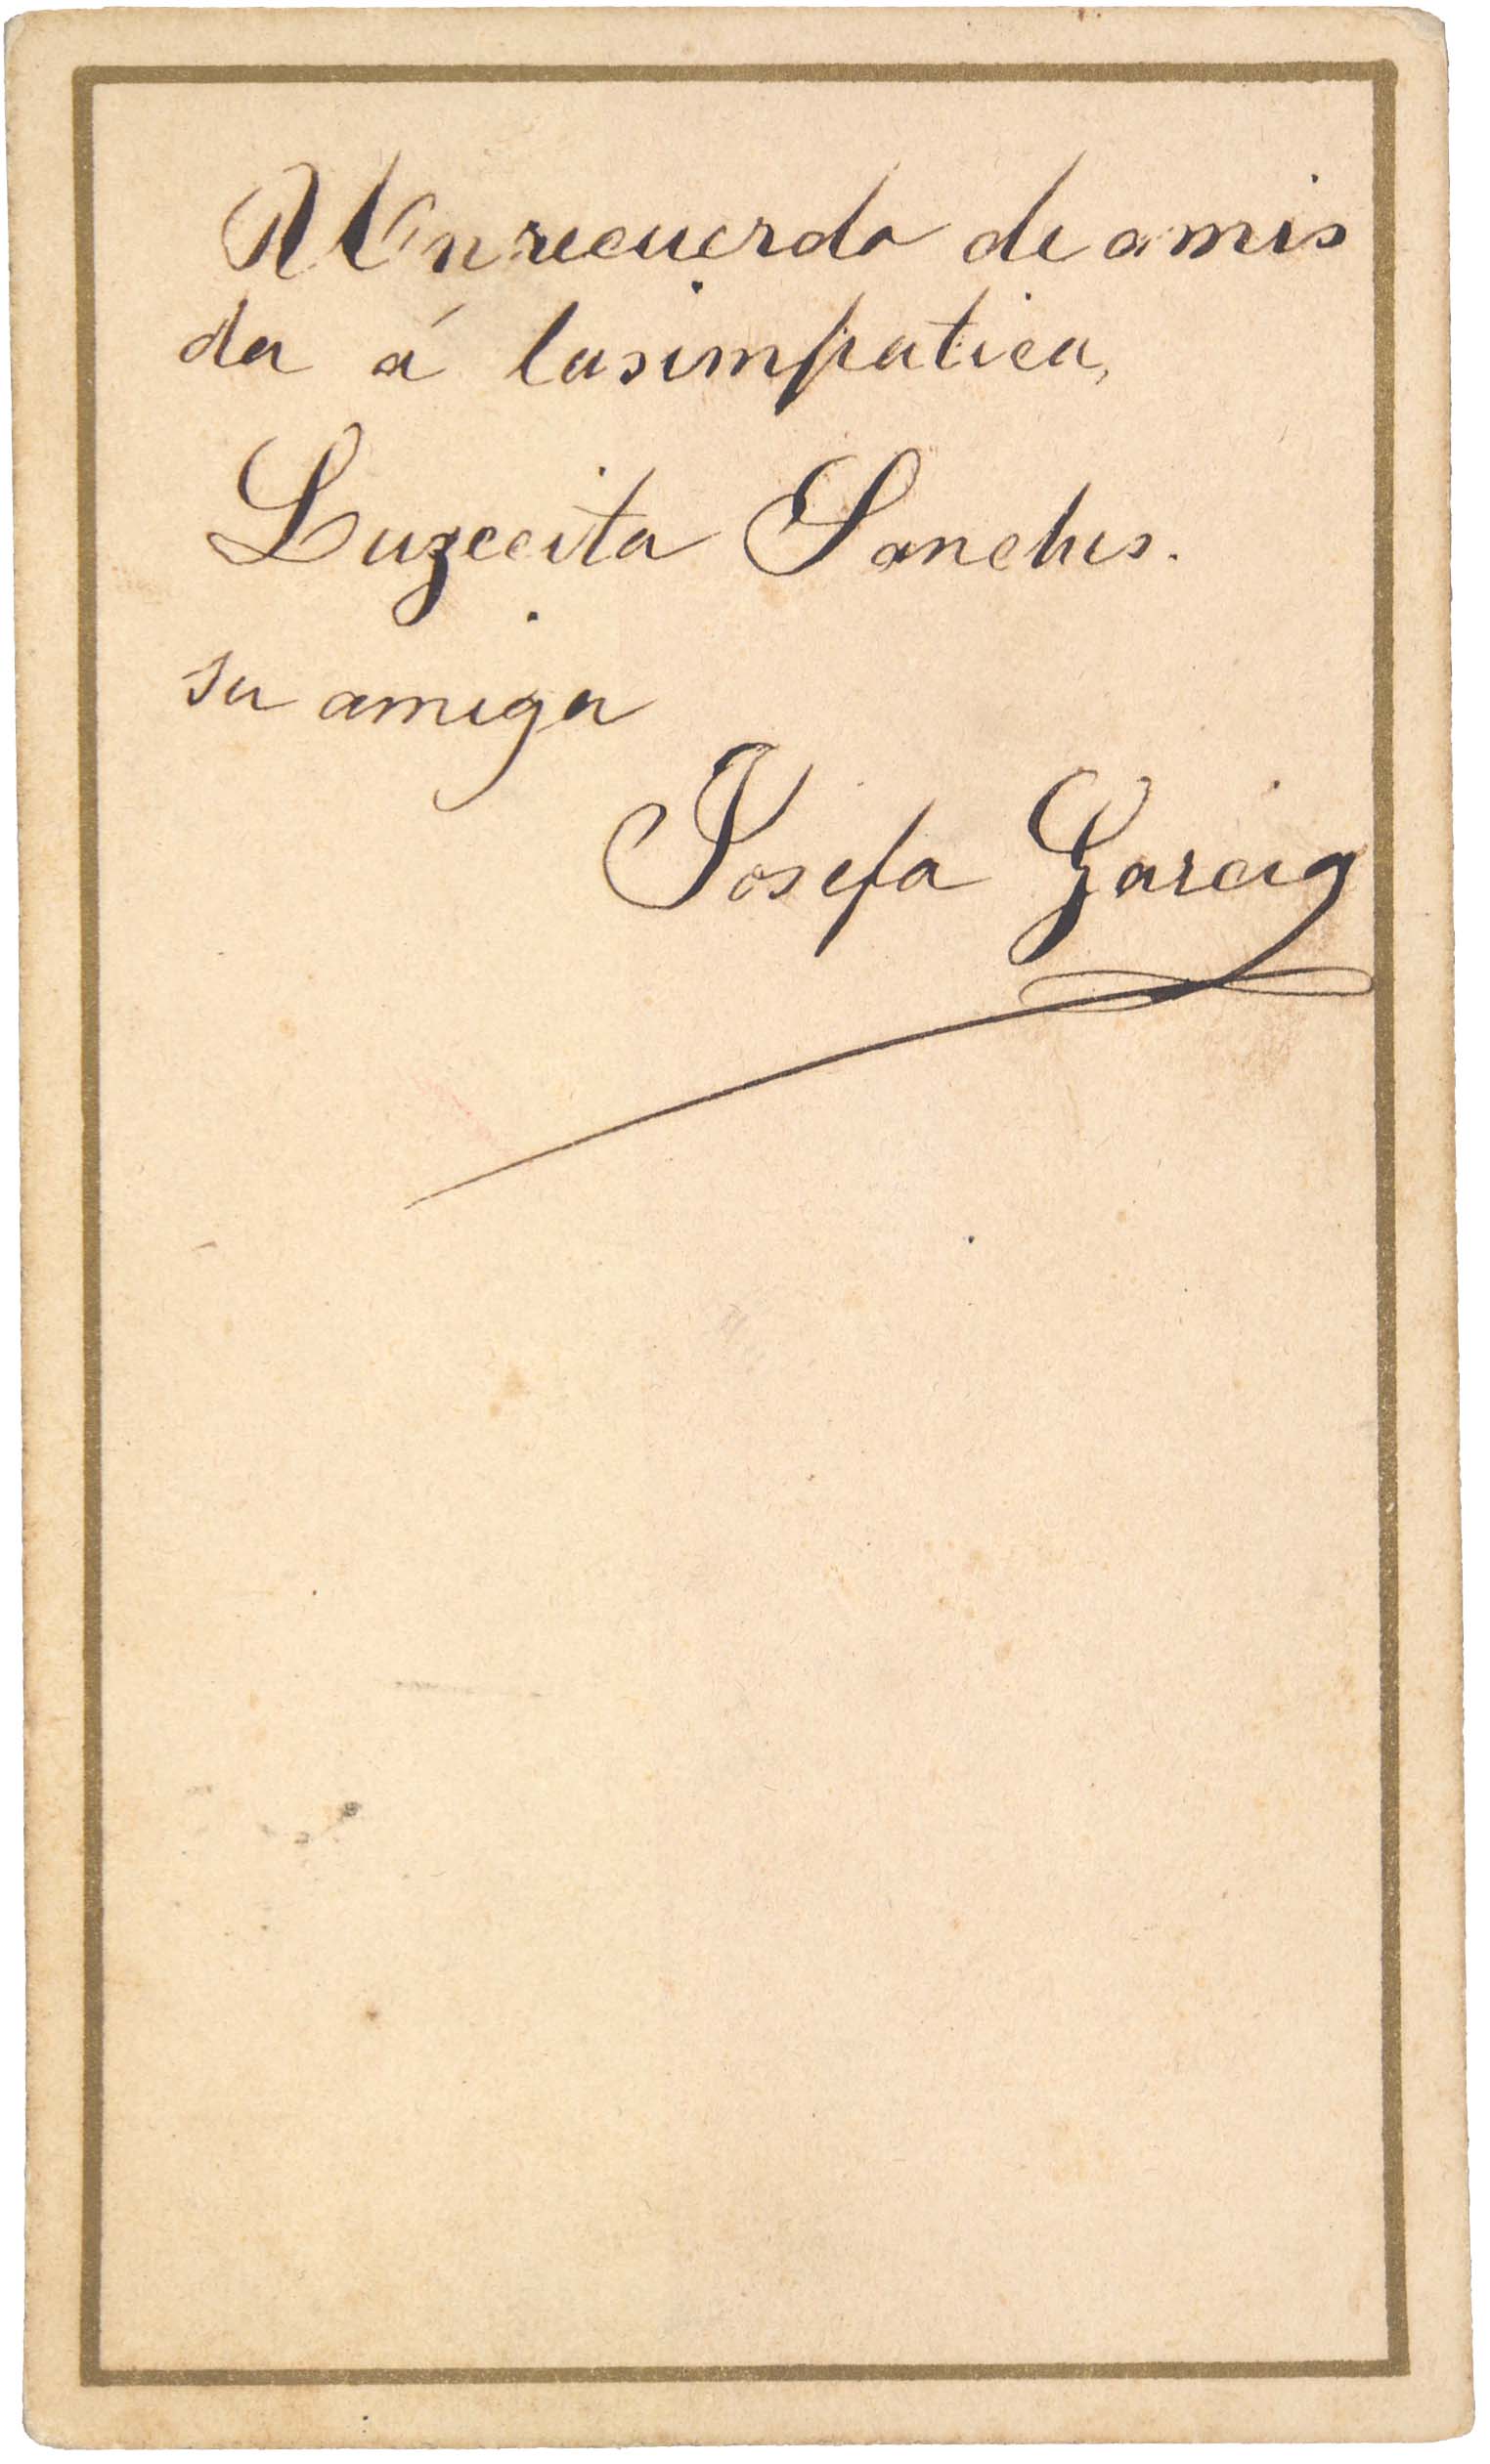 Un recuerdo de amis
da á la simpatica,
Luzecita Sanches.
su amiga
Josefa Garcia